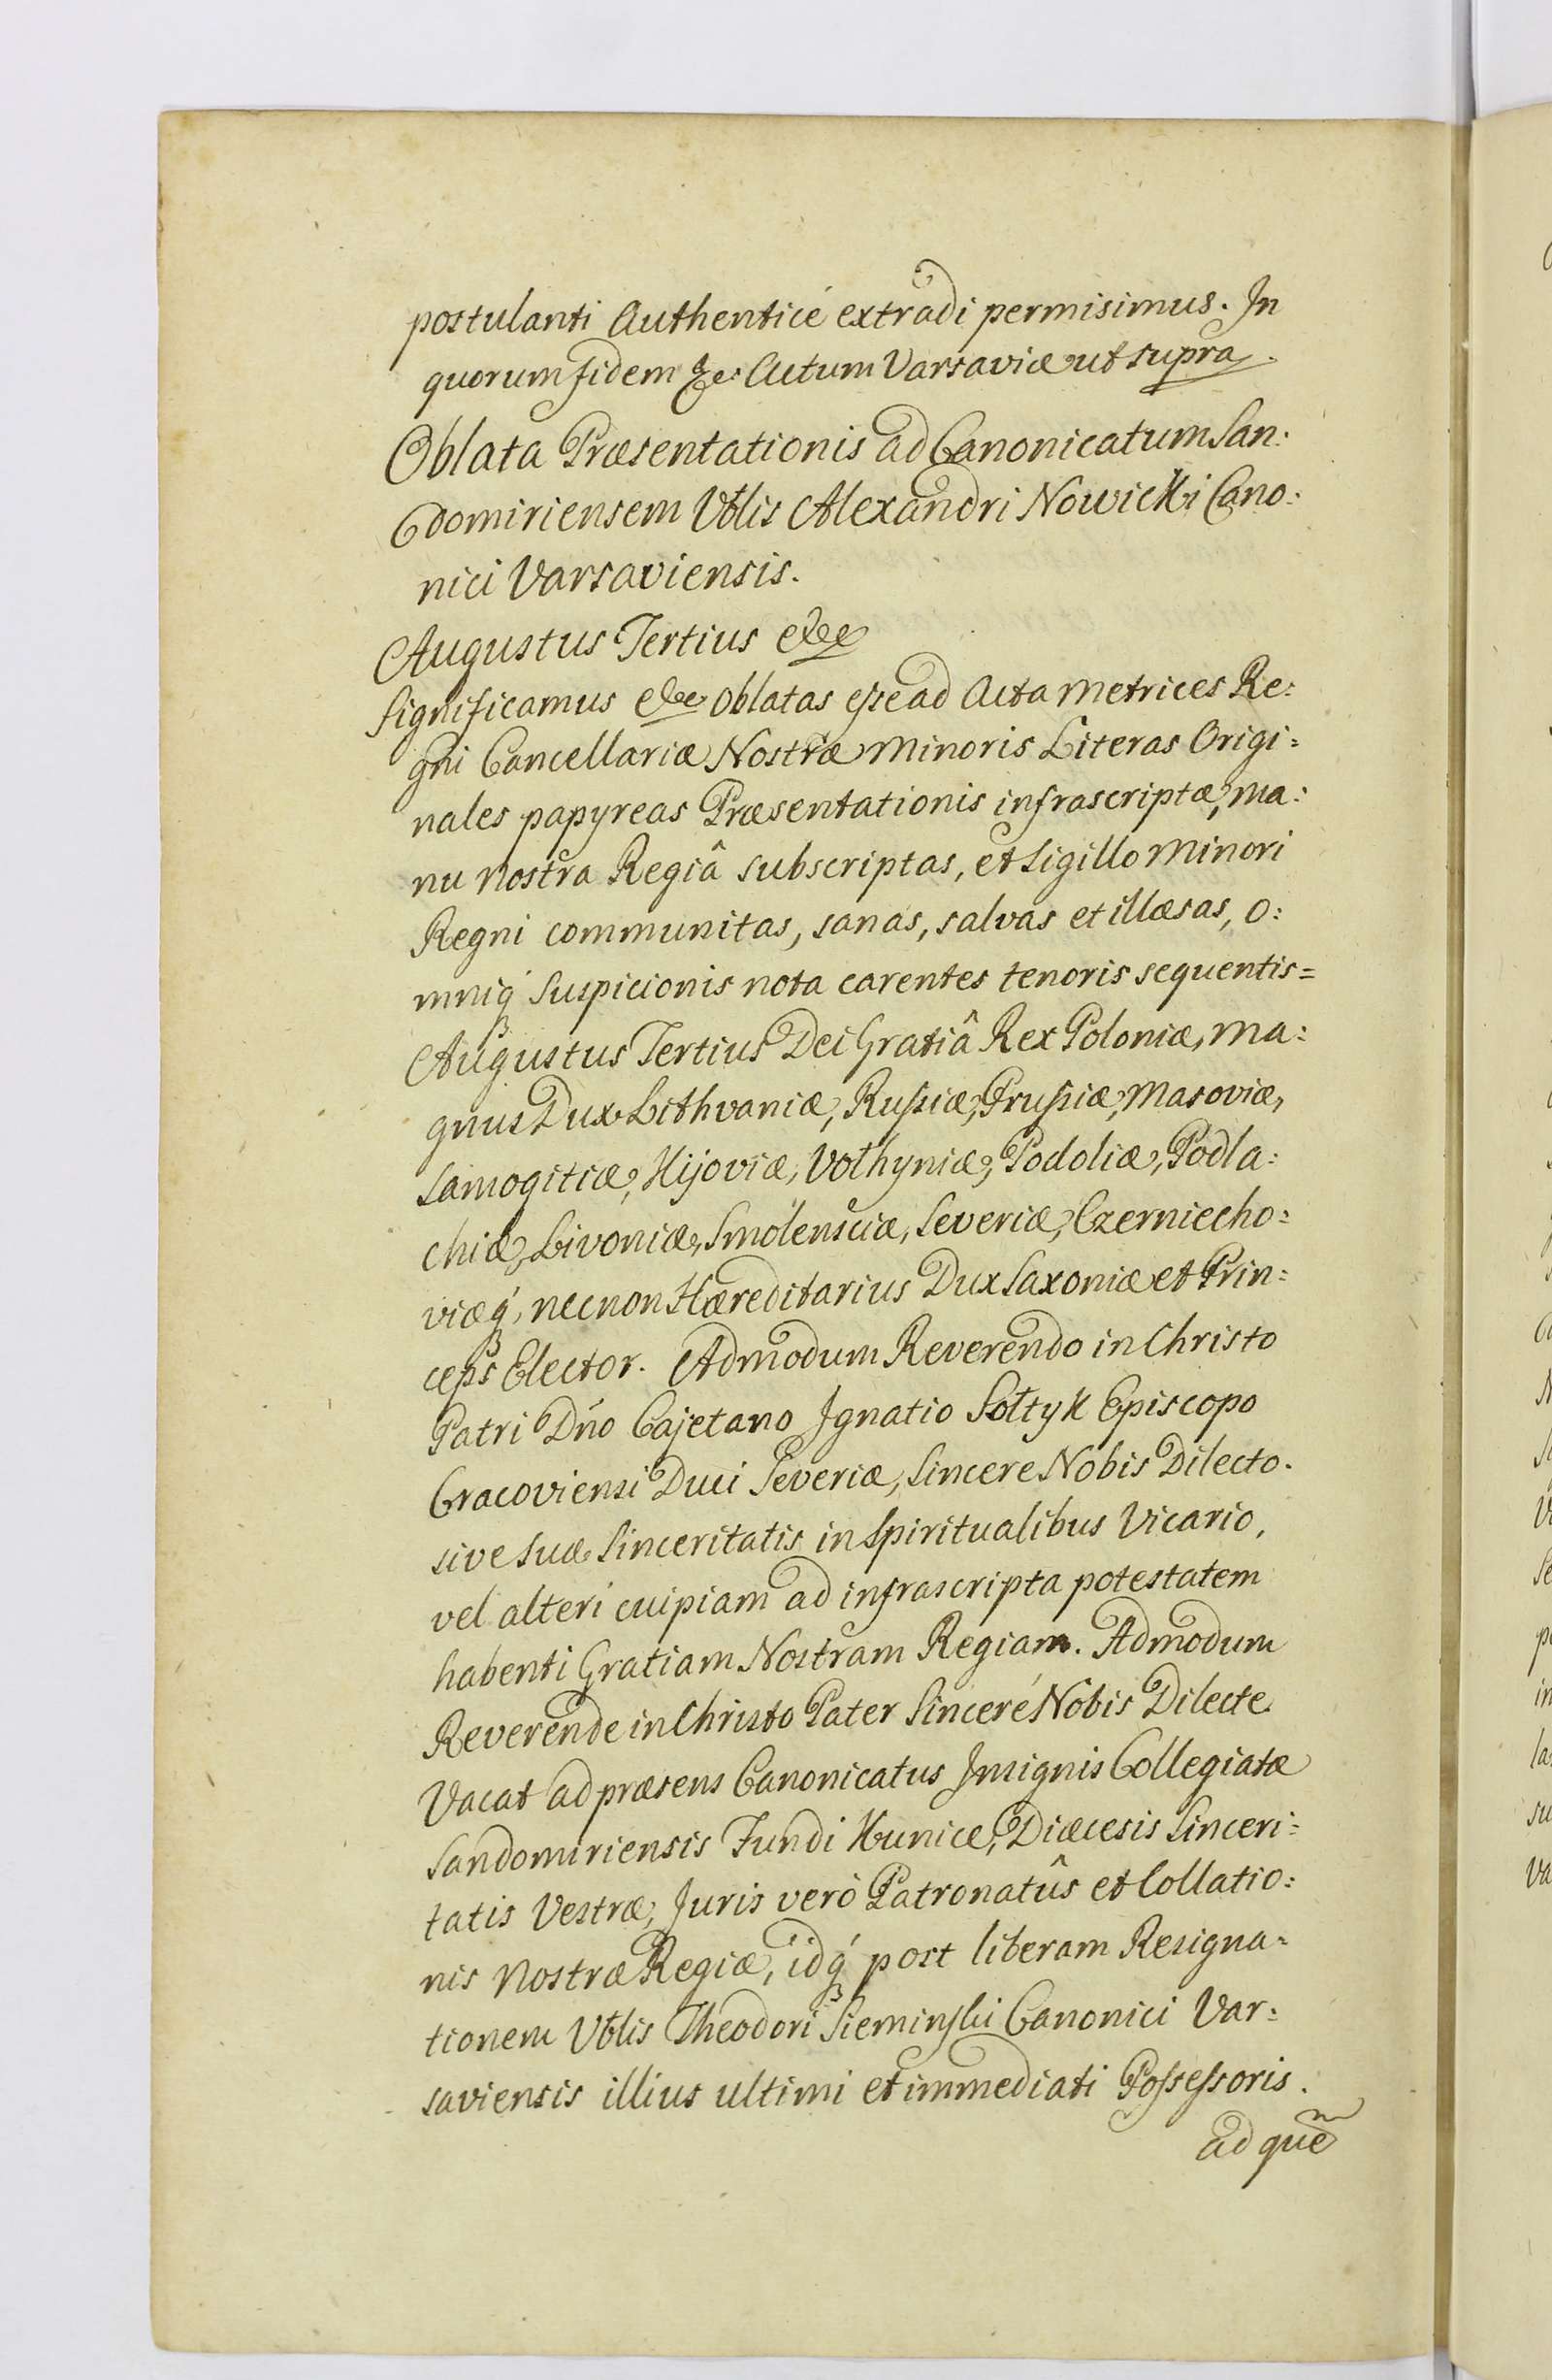 postulanti Authenticè extradi permisimus. In
quorum fidem &c: Actum Varsaviæ ut supra.
Oblata Præsentationis ad Canonicatum San:
domiriensem Vblis Alexandri Nowicki Cano:
nici Varsaviensis.
Augustus Tertius &c
Significamus &c Oblatas eſse ad Acta Metrices Re:
gni Cancellariæ Nostræ Minoris Literas Origi=
nales papyreas Præsentationis infrascriptæ, ma:
nu Nostra Regiâ subscriptas, et Sigillo Minori
Regni communitas, sanas, salvas et illæsas, o:
mniq́ suspicionis nota carentes tenoris sequentis=
Augustus Tertius Dei Gratiâ Rex Poloniæ, Ma:
gnus Dux Lithvaniæ, Ruſsiæ, Pruſsiæ, Masoviæ,
Samogitiæ, Kijoviæ, Volhyniæ, Podoliæ, Podla:
chiæ, Livoniæ, Smolensciæ, Severiæ, Czerniecho:
viæq́, necnon Hæreditarius Dux Saxoniæ et Prin:
ceps Elector. Admodum Reverendo in Christo
Patri Dńo Cajetano Ignatio Sołtyk Episcopo
Cracoviensi Duci Severiæ, Sincere Nobis Dilecto.
sive suæ Sinceritatis in Spiritualibus Vicario,
vel alteri cuipiam ad infrascripta potestatem
habenti Gratiam Nostram Regiam. Admodum
Reverende in Christo Pater Sinceré Nobis Dilecte
Vacat ad præsens Canonicatus Insignis Collegiatæ
Sandomiriensis Fundi Kunice, Diæcesis Sinceri:
tatis Vestræ, Juris verò Patronatûs et Collatio:
nis Nostræ Regiæ, idq́ post liberam Resigna=
tionem Vblis Theodori Sieminski Canonici Var:
saviensis illius ultimi et immediati Poſseſsoris.
ad quem̃